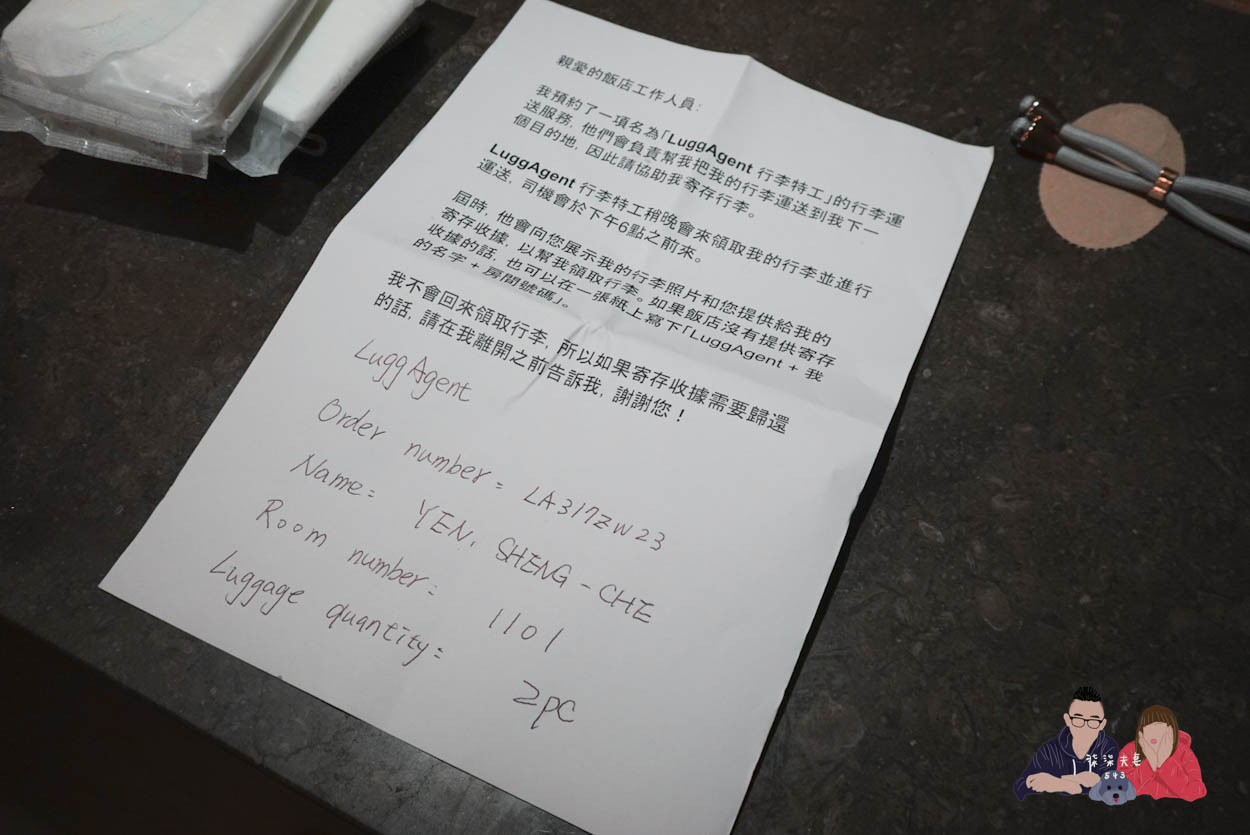 親愛的飯店工作人員:
我預約了一項名為「LuggAgent 行李特工」的行李運
送服務, 他們會負責幫我把我的行李運送到我下一
個目的地, 因此請協助我寄存行李。
LuggAgent 行李特工稍晚會來領取我的行李並進行
運送, 司機會於下午6點之前來。
屆時, 他會向您展示我的行李照片和您提供給我的
寄存收據, 以幫我領取行李。如果飯店沒有提供寄存
收據的話, 也可以在一張紙上寫下「LuggAgent + 我
的名字 + 房間號碼」。
我不會回來領取行李, 所以如果寄存收據需要歸還
的話, 請在我離開之前告訴我, 謝謝您!
LuggAgent
Order number: LA317ZW23
Name: YEN, SHENG-CHE
Room number: 1101
Luggage quantity: 2pc
夫妻
543